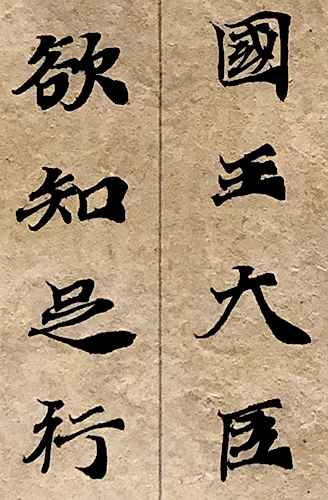 國王大臣
欲知足行